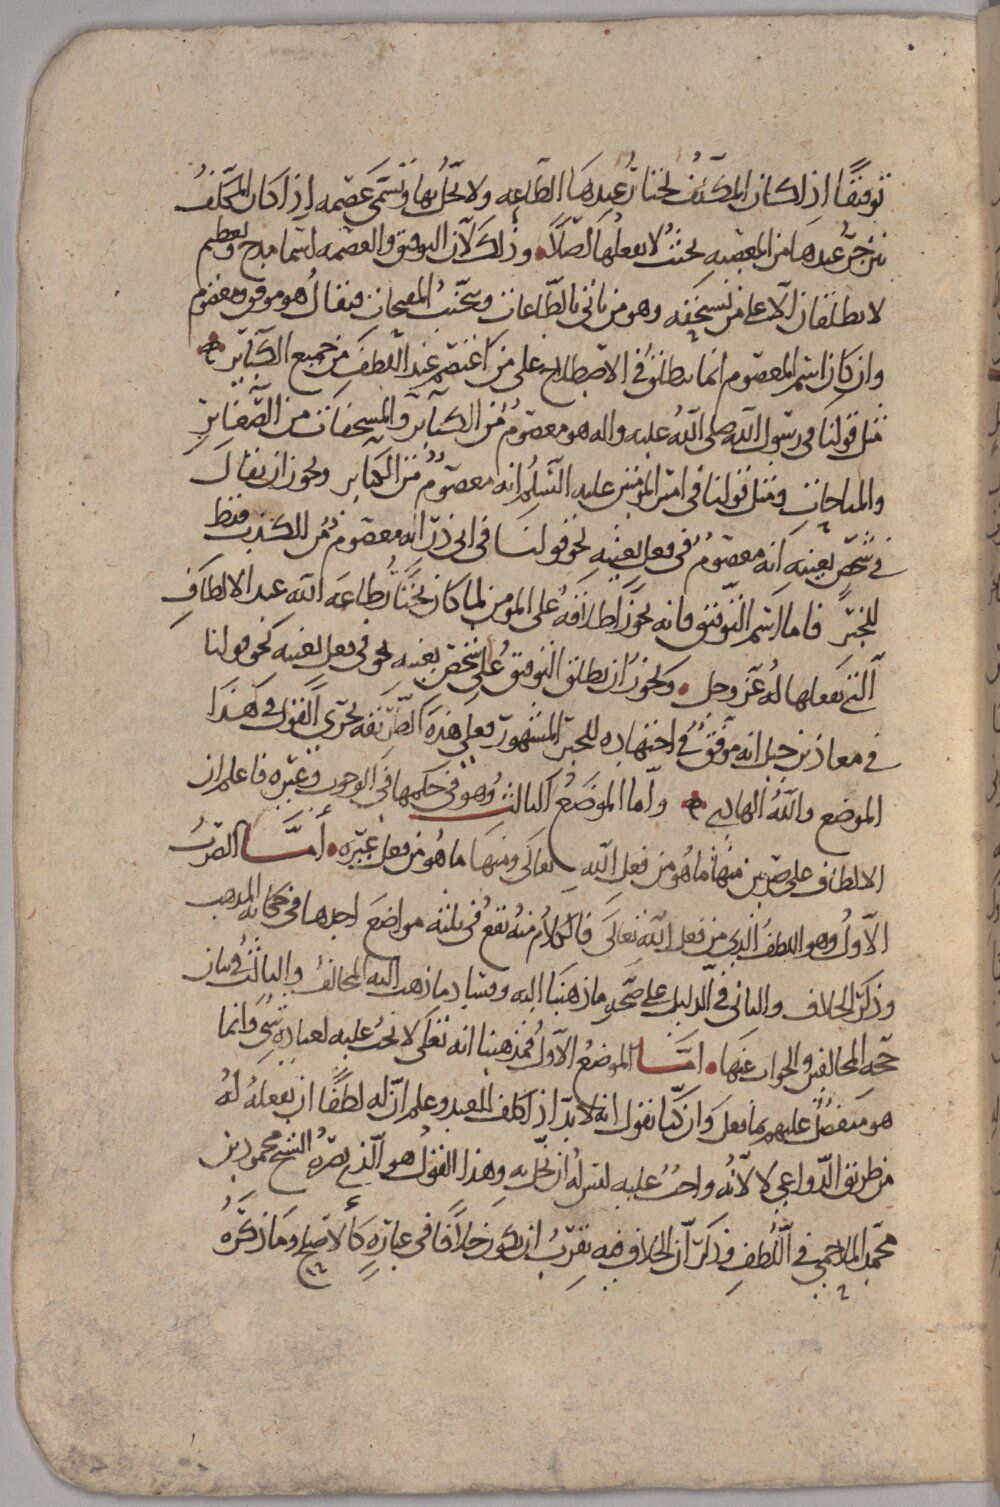 توفيقًا اذا كان المكلف يختار عندها الطاعه ولا يخل بها وتسمى عصمه اذا كان المكلف
ينزجر عندها من المعصيه بحيث لا يفعلها اصلًا وذلك لان التوفيق والعصمه اسما مدح وتعظيم
لا يطلقان الا على من يستحقه وهو من ياتي بالطاعات ويتجنب المقبحات فيقال هو موفق ومعصوم
وان كان اسم المعصوم انما يطلق في الاصطلاح على من اعتصم عند اللطف من جميع الكبآئر
مثل قولنا في رسول الله صلى الله عليه واله هو معصوم من الكبآئر والمسخفات من الصغائر
والمباحات ومثل قولنا في امير المؤمنين عليه السلم انه معصوم من الكبائر ويجوز ان يقال
في شخص بعينه انه معصوم في فعل بعينه نحو قولنا في ابي ذر انه معصوم من الكذب فقط
للخبر فاما اسم التوفيق فانه يجوز اطلاقه على المومن لما كان يختار طاعه الله عند الالطاف
التي يفعلها له عز وجل ويجوز ان يطلق التوفيق على شخص بعينه في فعل بعينه نحو قولنا
في معاذ بن جبل انه موفق في اجتهاده للخبر المشهور فعلى هذه الطريقه يجري القول في هذا
الموضع والله الهادي واما الموضع الثالث وهو في حكمها في الوجوب وغيره فاعلم ان
الالطاف على ضربين منها ما هو من فعل الله تعالى ومنها ما هو من فعل غيره أما الضرب
الاول وهو اللطف الذي من فعل الله تعالى فالكلام منه يقع في ثلثه مواضع احدها في حكايه المذهب
وذكر الخلاف والثاني في الدليل على صحه ما ذهبنا اليه وفساد ما ذهب اليه المخالف والثالث في بيان
حجه المخالفين والجواب عنها اما الموضع الاول فمذهبنا انه تعالى لا يجب عليه لعباده شي وانما
هو متفضل عليهم بما فعل وان كنا نقول انه لا بد اذا كلف العبد وعلم ان له لطفًا ان يفعله له
من طريق الدواعي لا لانه واجب عليه ليس له ان يخل به وهذا القول هو الذي نصره الشيخ محمود بن
محمد الملاحمي في اللطف وذكر ان الخلاف فيه يقرب ان يكون خلافا في عبارة كالاصلح وما ذكره